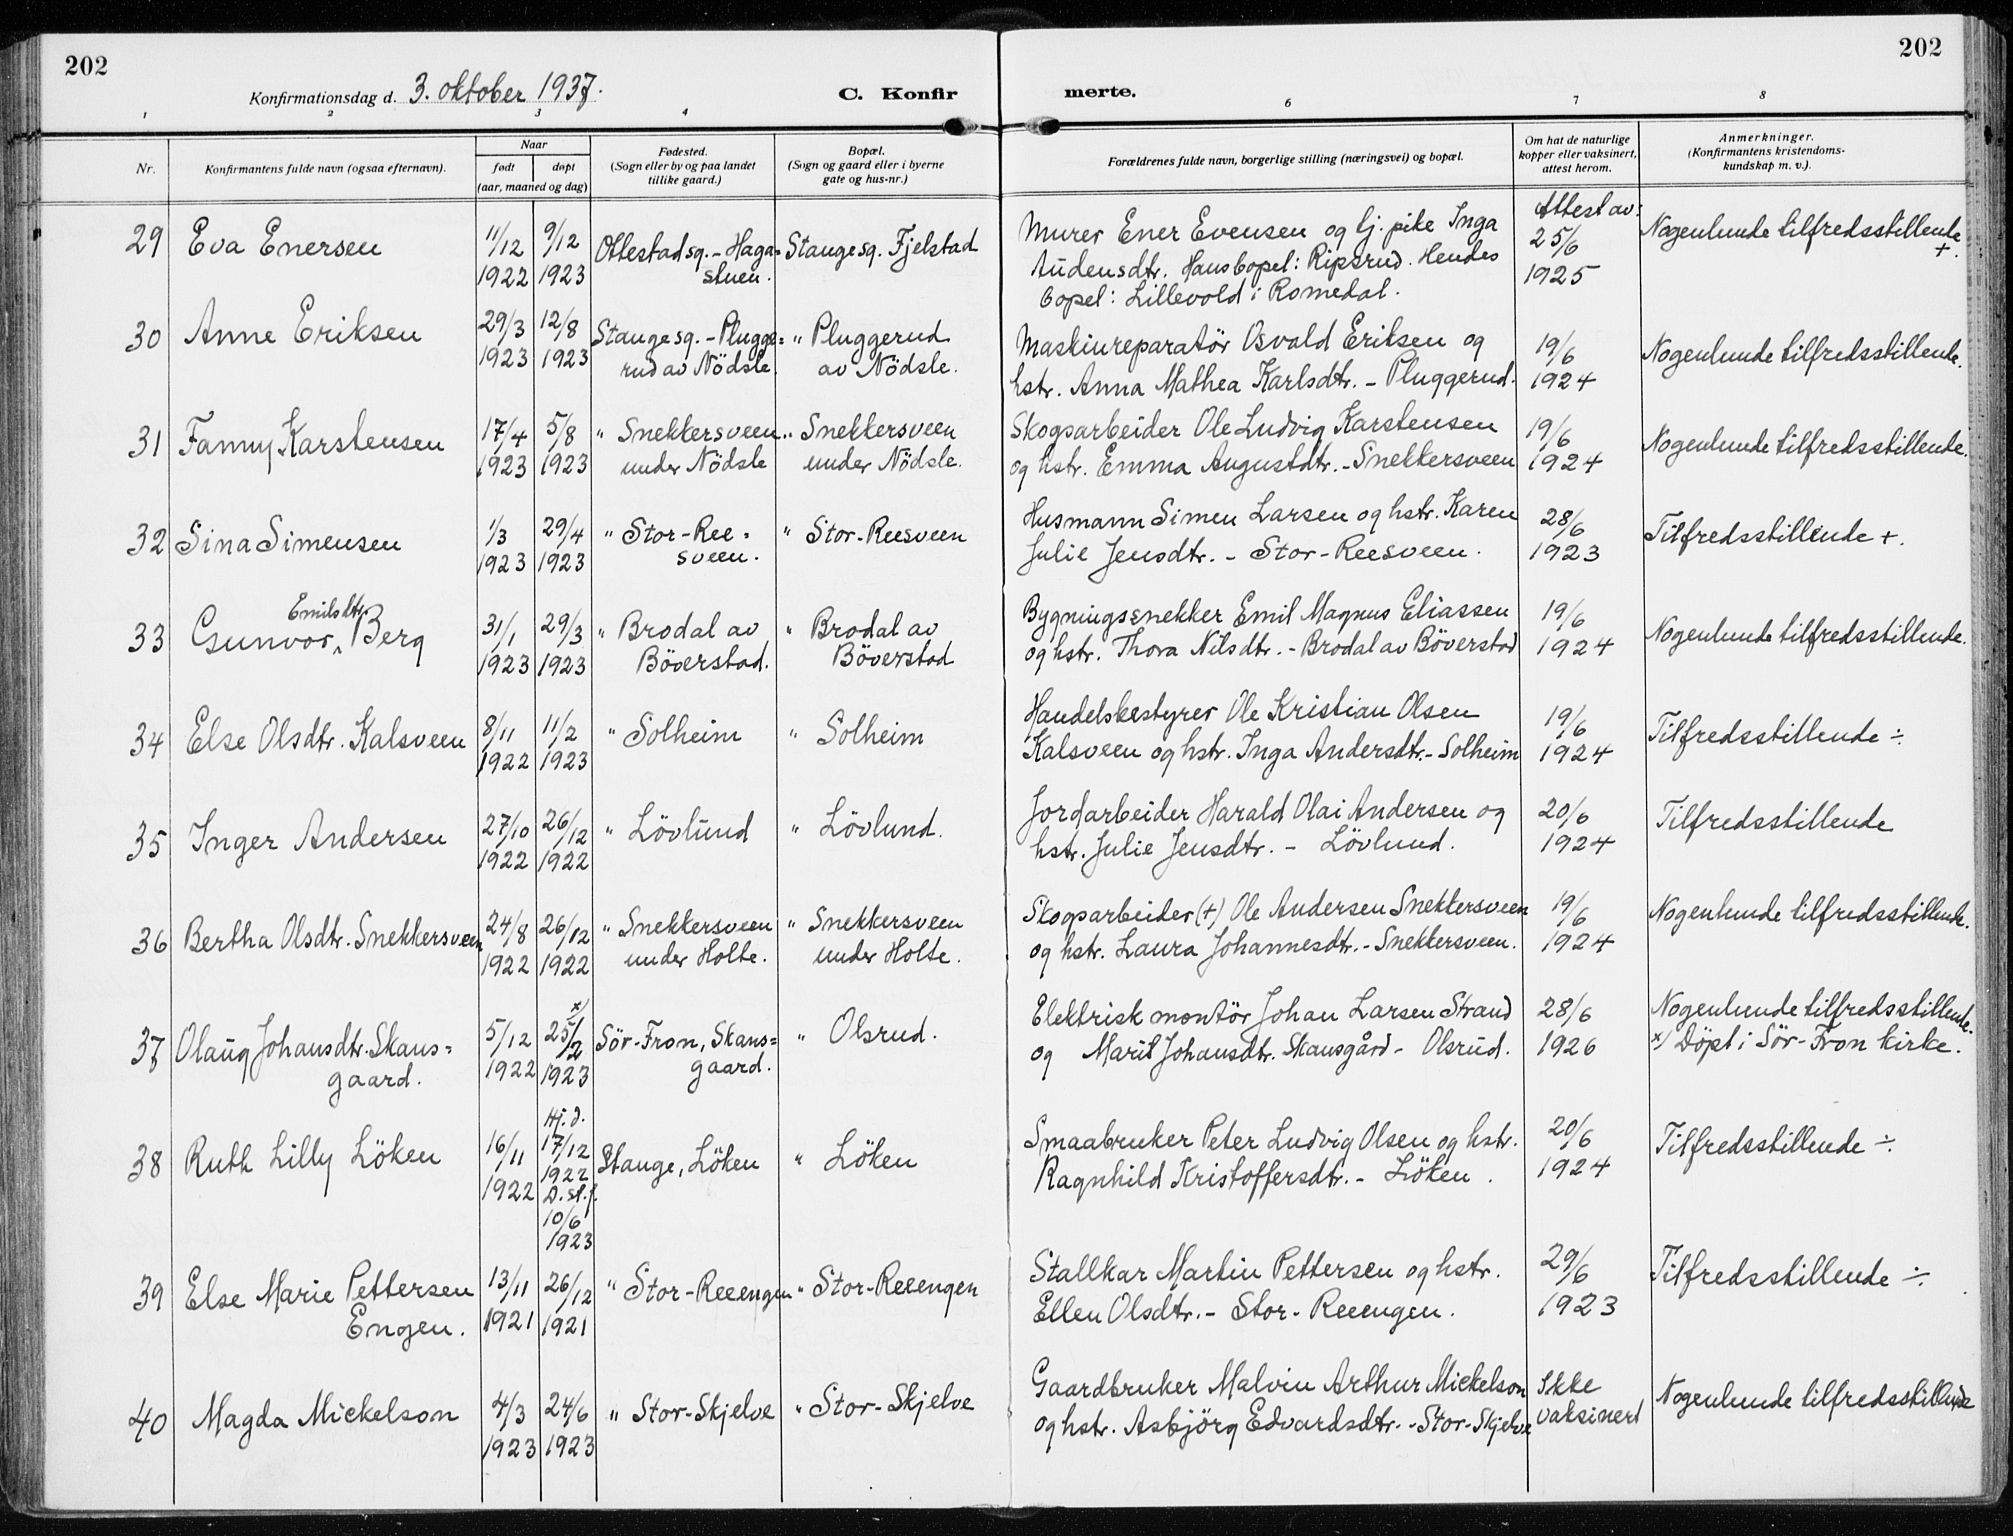 202
202
Konfirmationsdag d. 3. oktober 1937.
C. Konfir
merte.
1 2 3 4 6 7 8
Nr.
Konfirmantens fulde navn (ogsaa efternavn).
Naar
født døpt
(aar, maaned og dag)
Fødested.
(Sogn eller by og paa landet
tillike gaard.)
Bopæl.
(Sogn og gaard eller i byerne
gate og hus-nr.)
Forældrenes fulde navn, borgerlige stilling (næringsvei) og bopæl.
Om hat de naturlige
kopper eller vaksinert,
attest herom.
Anmerkninger.
(Konfirmantens kristendoms-
kundskap m. v.).
Attest av:
29 Eva Enersen 11/12 9/12 Ottestad sg. - Haga= Stange sg. Fjelstad Murer Ener Evensen og Inga 25/6 Nogenlunde tilfredsstillende
1922 1923 stuen. Audensdtr. Hans bopel: Ripsrud. Hendes 1925 +.
bopel: Lillevold i Romedal.
30 Anne Eriksen 29/3 12/8 Stange sg. - Plugge= " Pluggerud Maskinreparatör Osvald Eriksen og 19/6 Nogenlunde tilfredsstillende.
1923 1923 rud av Nödsle. av Nödsle. hstr. Anna Mathea Karlsdtr. - Pluggerud. 1924
31 Fanny Karstensen 17/4 5/8 " Snekkersveen " Snekkersveen Skogsarbeider Ole Ludvig Karstensen 19/6 Nogenlunde tilfredsstillende.
1923 1923 under Nödsle under Nödsle. og hstr. Emma Augustdtr. - Snekkersveen 1924
32 Sina Simensen 1/3 29/4 " Stor-Ree= " Stor-Reesveen Husmann Simen Larsen og hstr. Karen 28/6 Tilfredsstillende +.
1923 1923 sveen. Julie Jensdtr. - Stor-Reesveen. 1923
Emilsdtr.
33 Gunvor ^ Berg 31/1 29/3 " Brodal av " Brodal av Bygningssnekker Emil Magnus Eliassen 19/6 Nogenlunde tilfredsstillende.
1923 1923 Böverstad. Böverstad og hstr. Thora Nilsdtr. - Brodal av Böverstad 1924
34 Else Olsdtr. Kalsveen 8/11 11/2 " Solheim " Solheim Handelsbestyrer Ole Kristian Olsen 19/6 Tilfredsstillende ÷
1922 1923 Kalsveen og hstr. Inga Andersdtr. - Solheim 1924
35 Inger Andersen 27/10 26/12 " Lövlund " Lövlund. Jordarbeider Harald Olai Andersen og 20/6 Tilfredsstillende
1922 1922 hstr. Julie Jensdtr. - Lövlund. 1924
36 Bertha Olsdtr. Snekkersveen 24/8 26/12 " Snekkersveen " Snekkersveen Skogsarbeider (+) Ole Andersen Snekkersveen 19/6 Nogenlunde tilfredsstillende.
1922 1922 under Holte. under Holte. og hstr. Laura Johannesdtr. - Snekkersveen. 1924
x)
37 Olaug Johansdtr. Skans= 5/12 25/2 Sör-Fron, Skans= " Olsrud. Elektrisk montör Johan Larsen Strand 28/6 Nogenlunde tilfredsstillende.
gaard. 1922 1923 gaard. og Marit Johansdtr. Skansgård - Olsrud. 1926 x) Döpt i Sör-Fron kirke.
Hj. d.
38 Ruth Lilly Löken 16/11 17/12 Stange, Löken " Löken Smaabruker Peter Ludvig Olsen og hstr. 20/6 Tilfredsstillende ÷
1922 1922 Ragnhild Kristoffersdtr. - Löken. 1924
D. st. f.
10/6
1923
39 Else Marie Pettersen 13/11 26/12 " Stor-Reeengen " Stor-Reeengen Stallkar Martin Pettersen og hstr. 29/6 Tilfredsstillende ÷
Engen. 1921 1921 Ellen Olsdtr. - Stor-Reeengen. 1923
40 Magda Mickelson 4/3 24/6 " Stor-Skjelve " Stor-Skjelve Gaardbruker Malvin Arthur Mickelson Ikke Nogenlunde tilfredsstillende
1923 1923 og hstr. Asbjörg Edvardsdtr. - Stor-Skjelve vaksinert